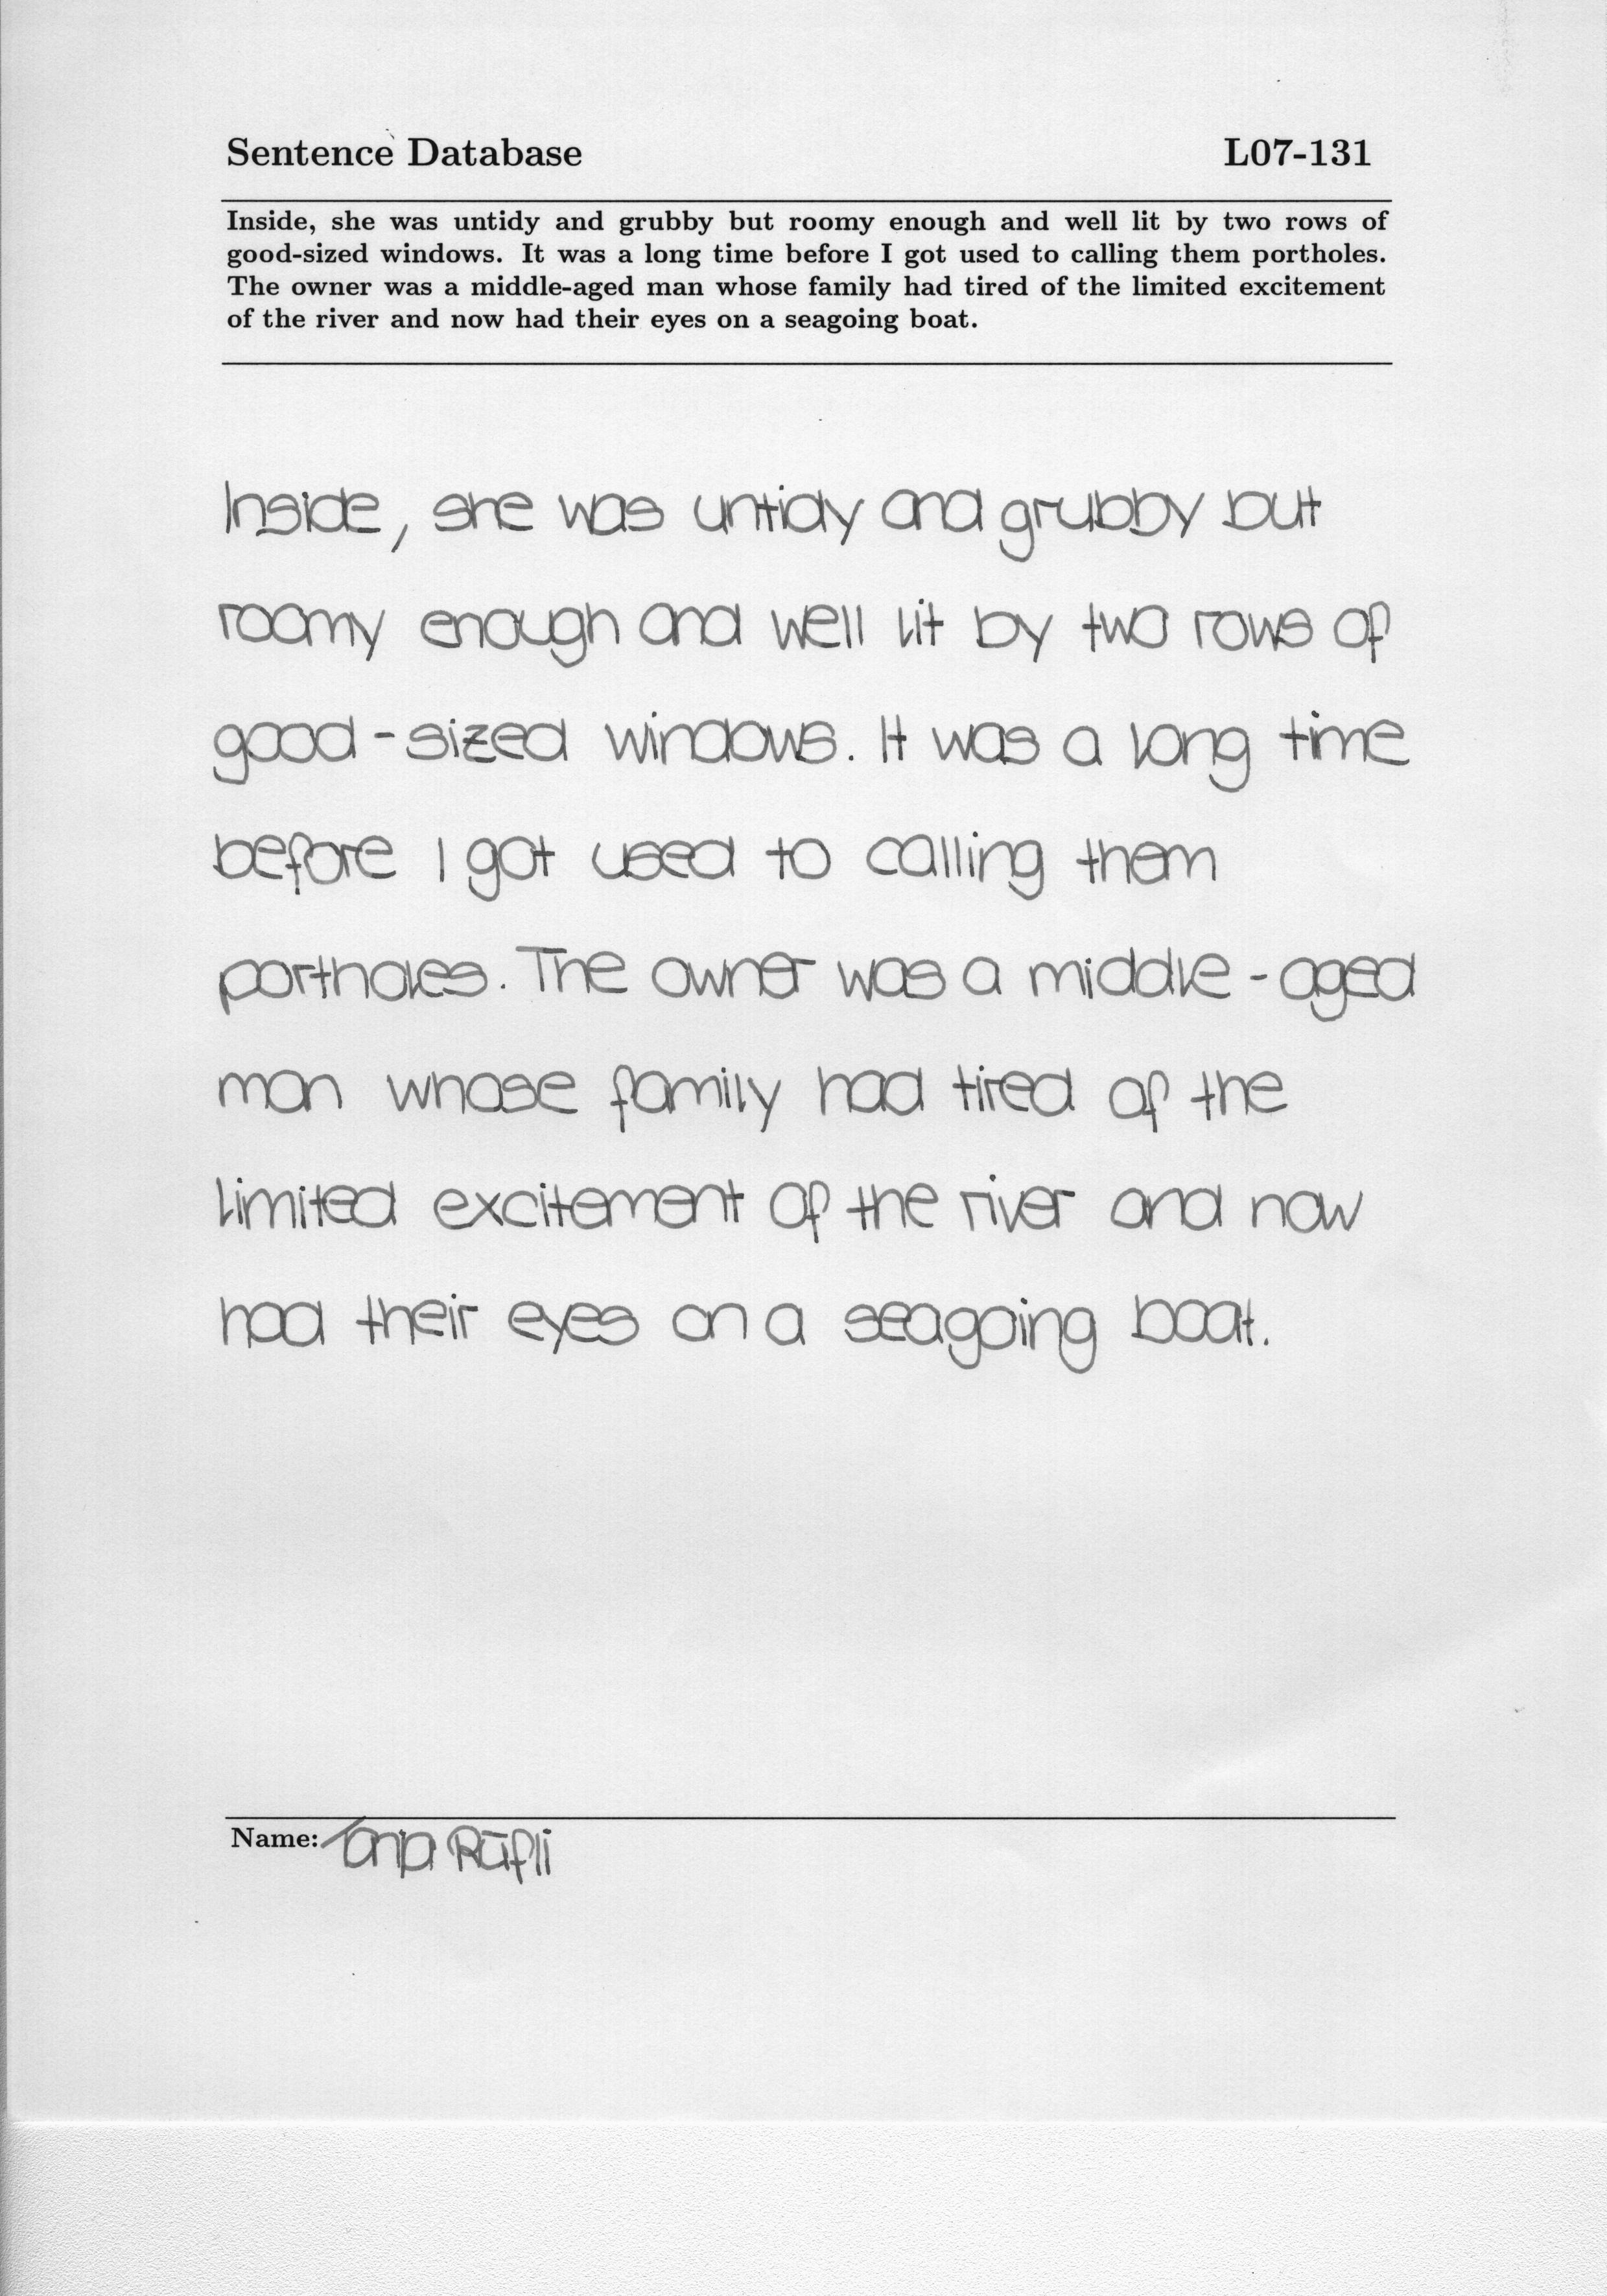 Sentence Database L07-131
Inside, she was untidy and grubby but roomy enough and well lit by two rows of
good-sized windows. It was a long time before I got used to calling them portholes.
The owner was a middle-aged man whose family had tired of the limited excitement
of the river and now had their eyes on a seagoing boat.
Inside, she was untidy and grubby but
roomy enough and well lit by two rows of
good-sized windows. It was a long time
before I got used to calling them
portholes. The owner was a middle-aged
man whose family had tired of the
limited excitement of the river and now
had their eyes on a seagoing boat.
Name: Tanja Rüfli